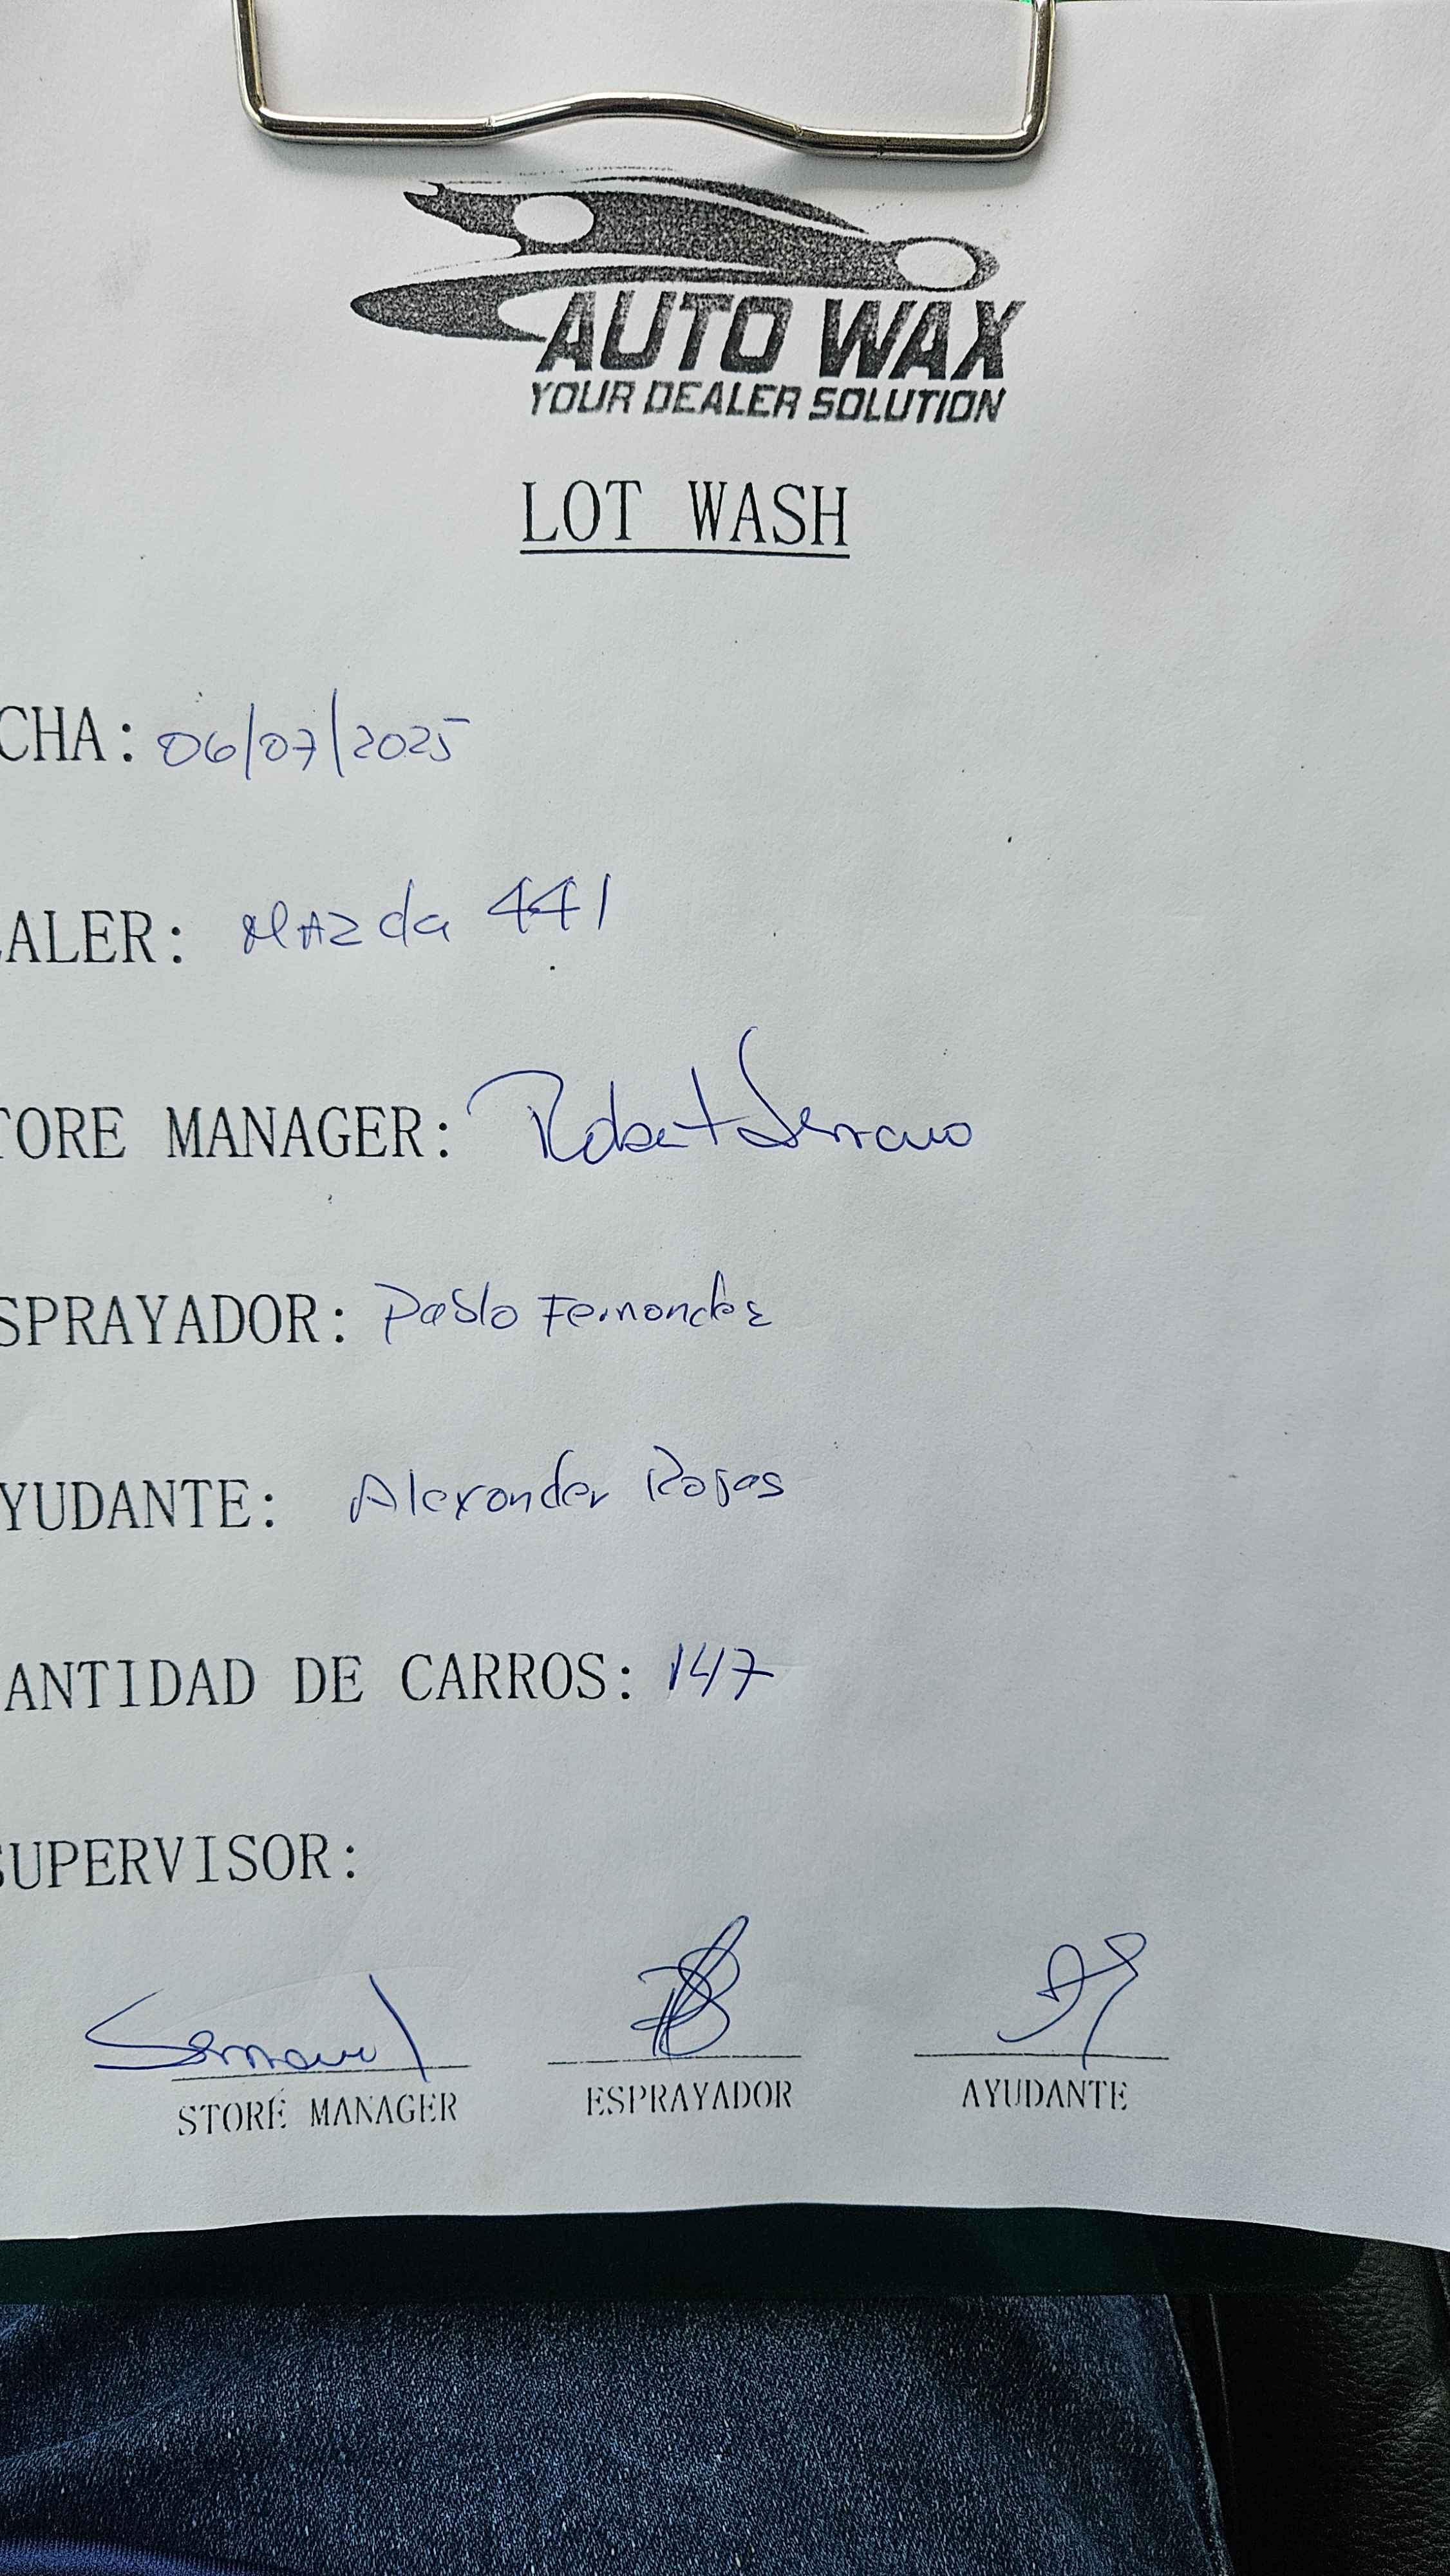 AUTO WAX
YOUR DEALER SOLUTION
LOT WASH
CHA: 06/07/2025
ALER: Mazda 441
TORE MANAGER: Robert Serrano
SPRAYADOR: Pablo Fernandez
YUDANTE: Alexander Rojas
ANTIDAD DE CARROS: 147
SUPERVISOR:
Serrano
STORE MANAGER ESPRAYADOR AYUDANTE